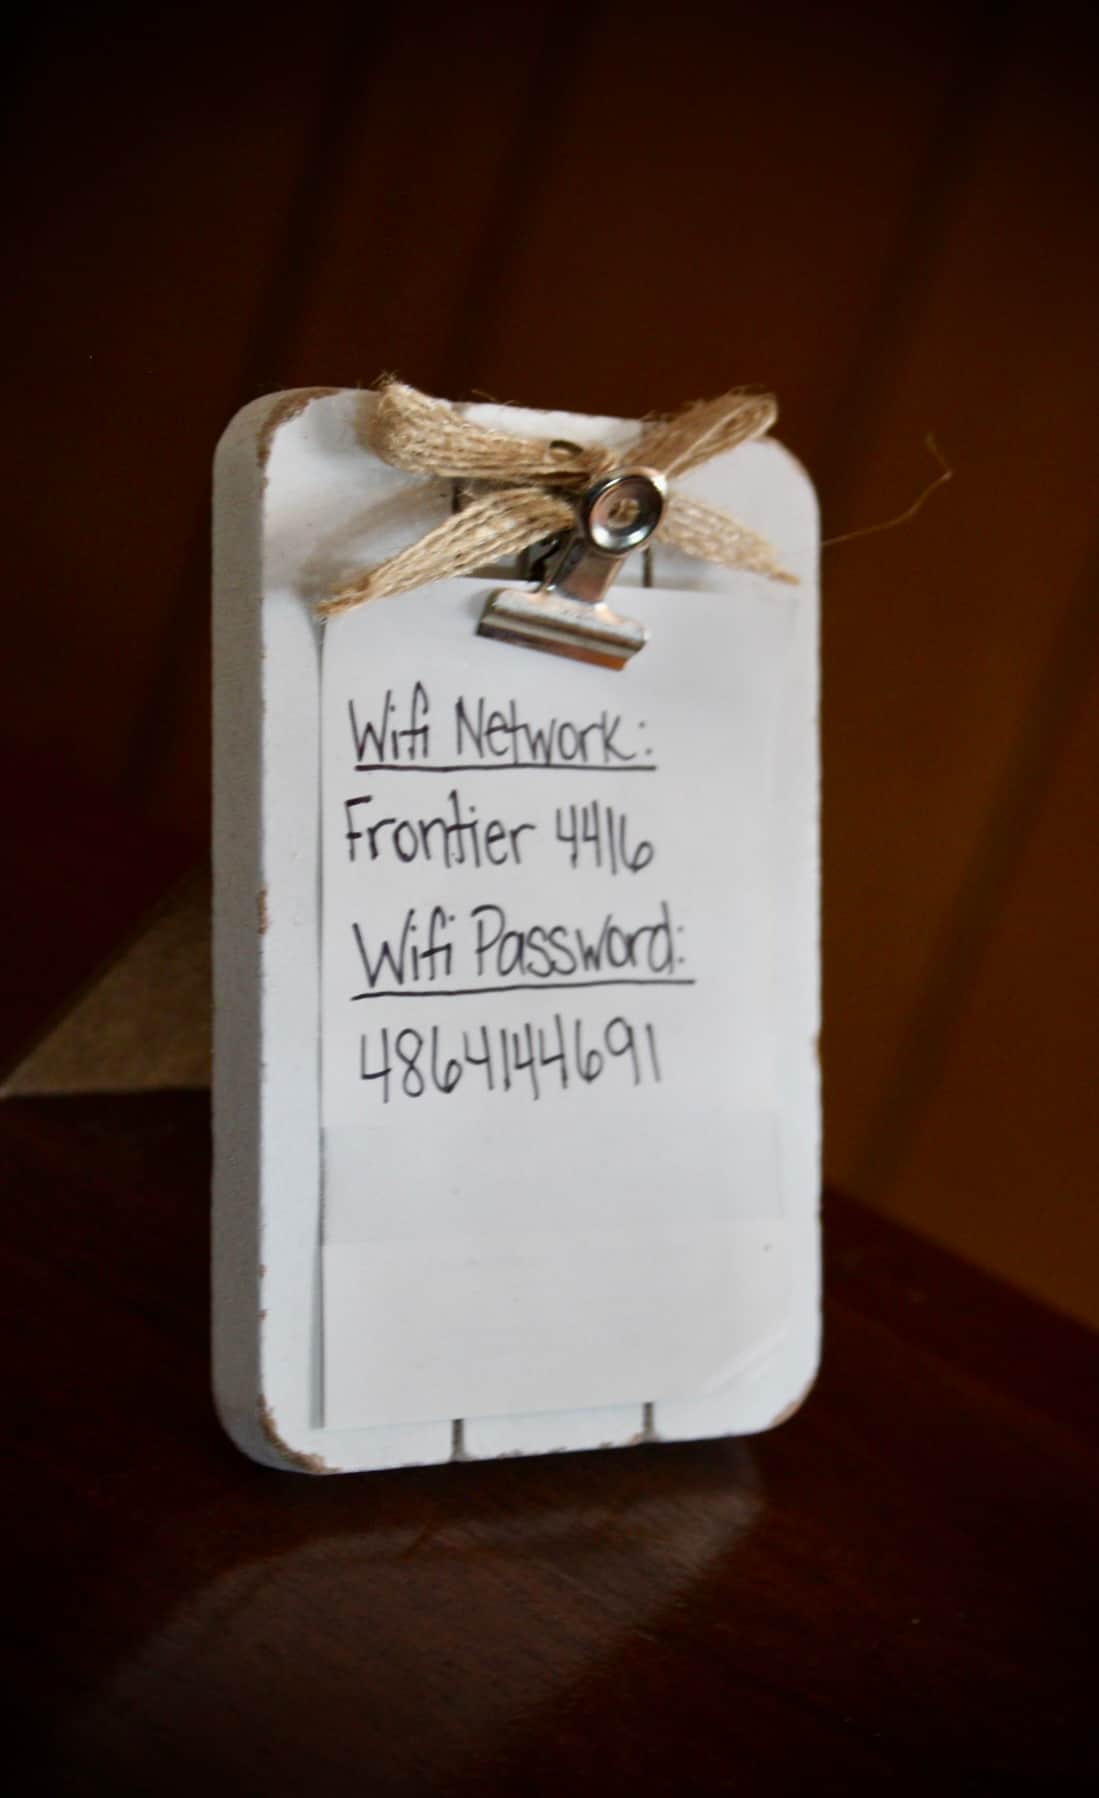 Wifi Network:
Frontier 4416
Wifi Password:
4864144691